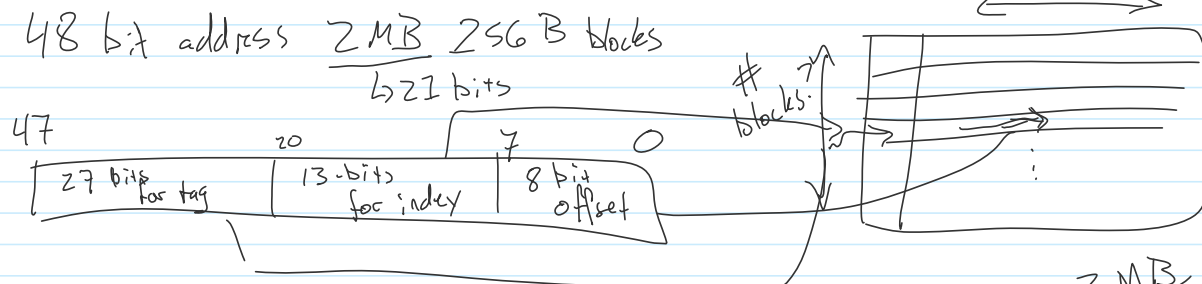 48 bit address 2MB 256 B blocks
↳ 21 bits
# blocks?
47 20 7 0
27 bits for tag 13-bits for index 8 bit offset
2 MB